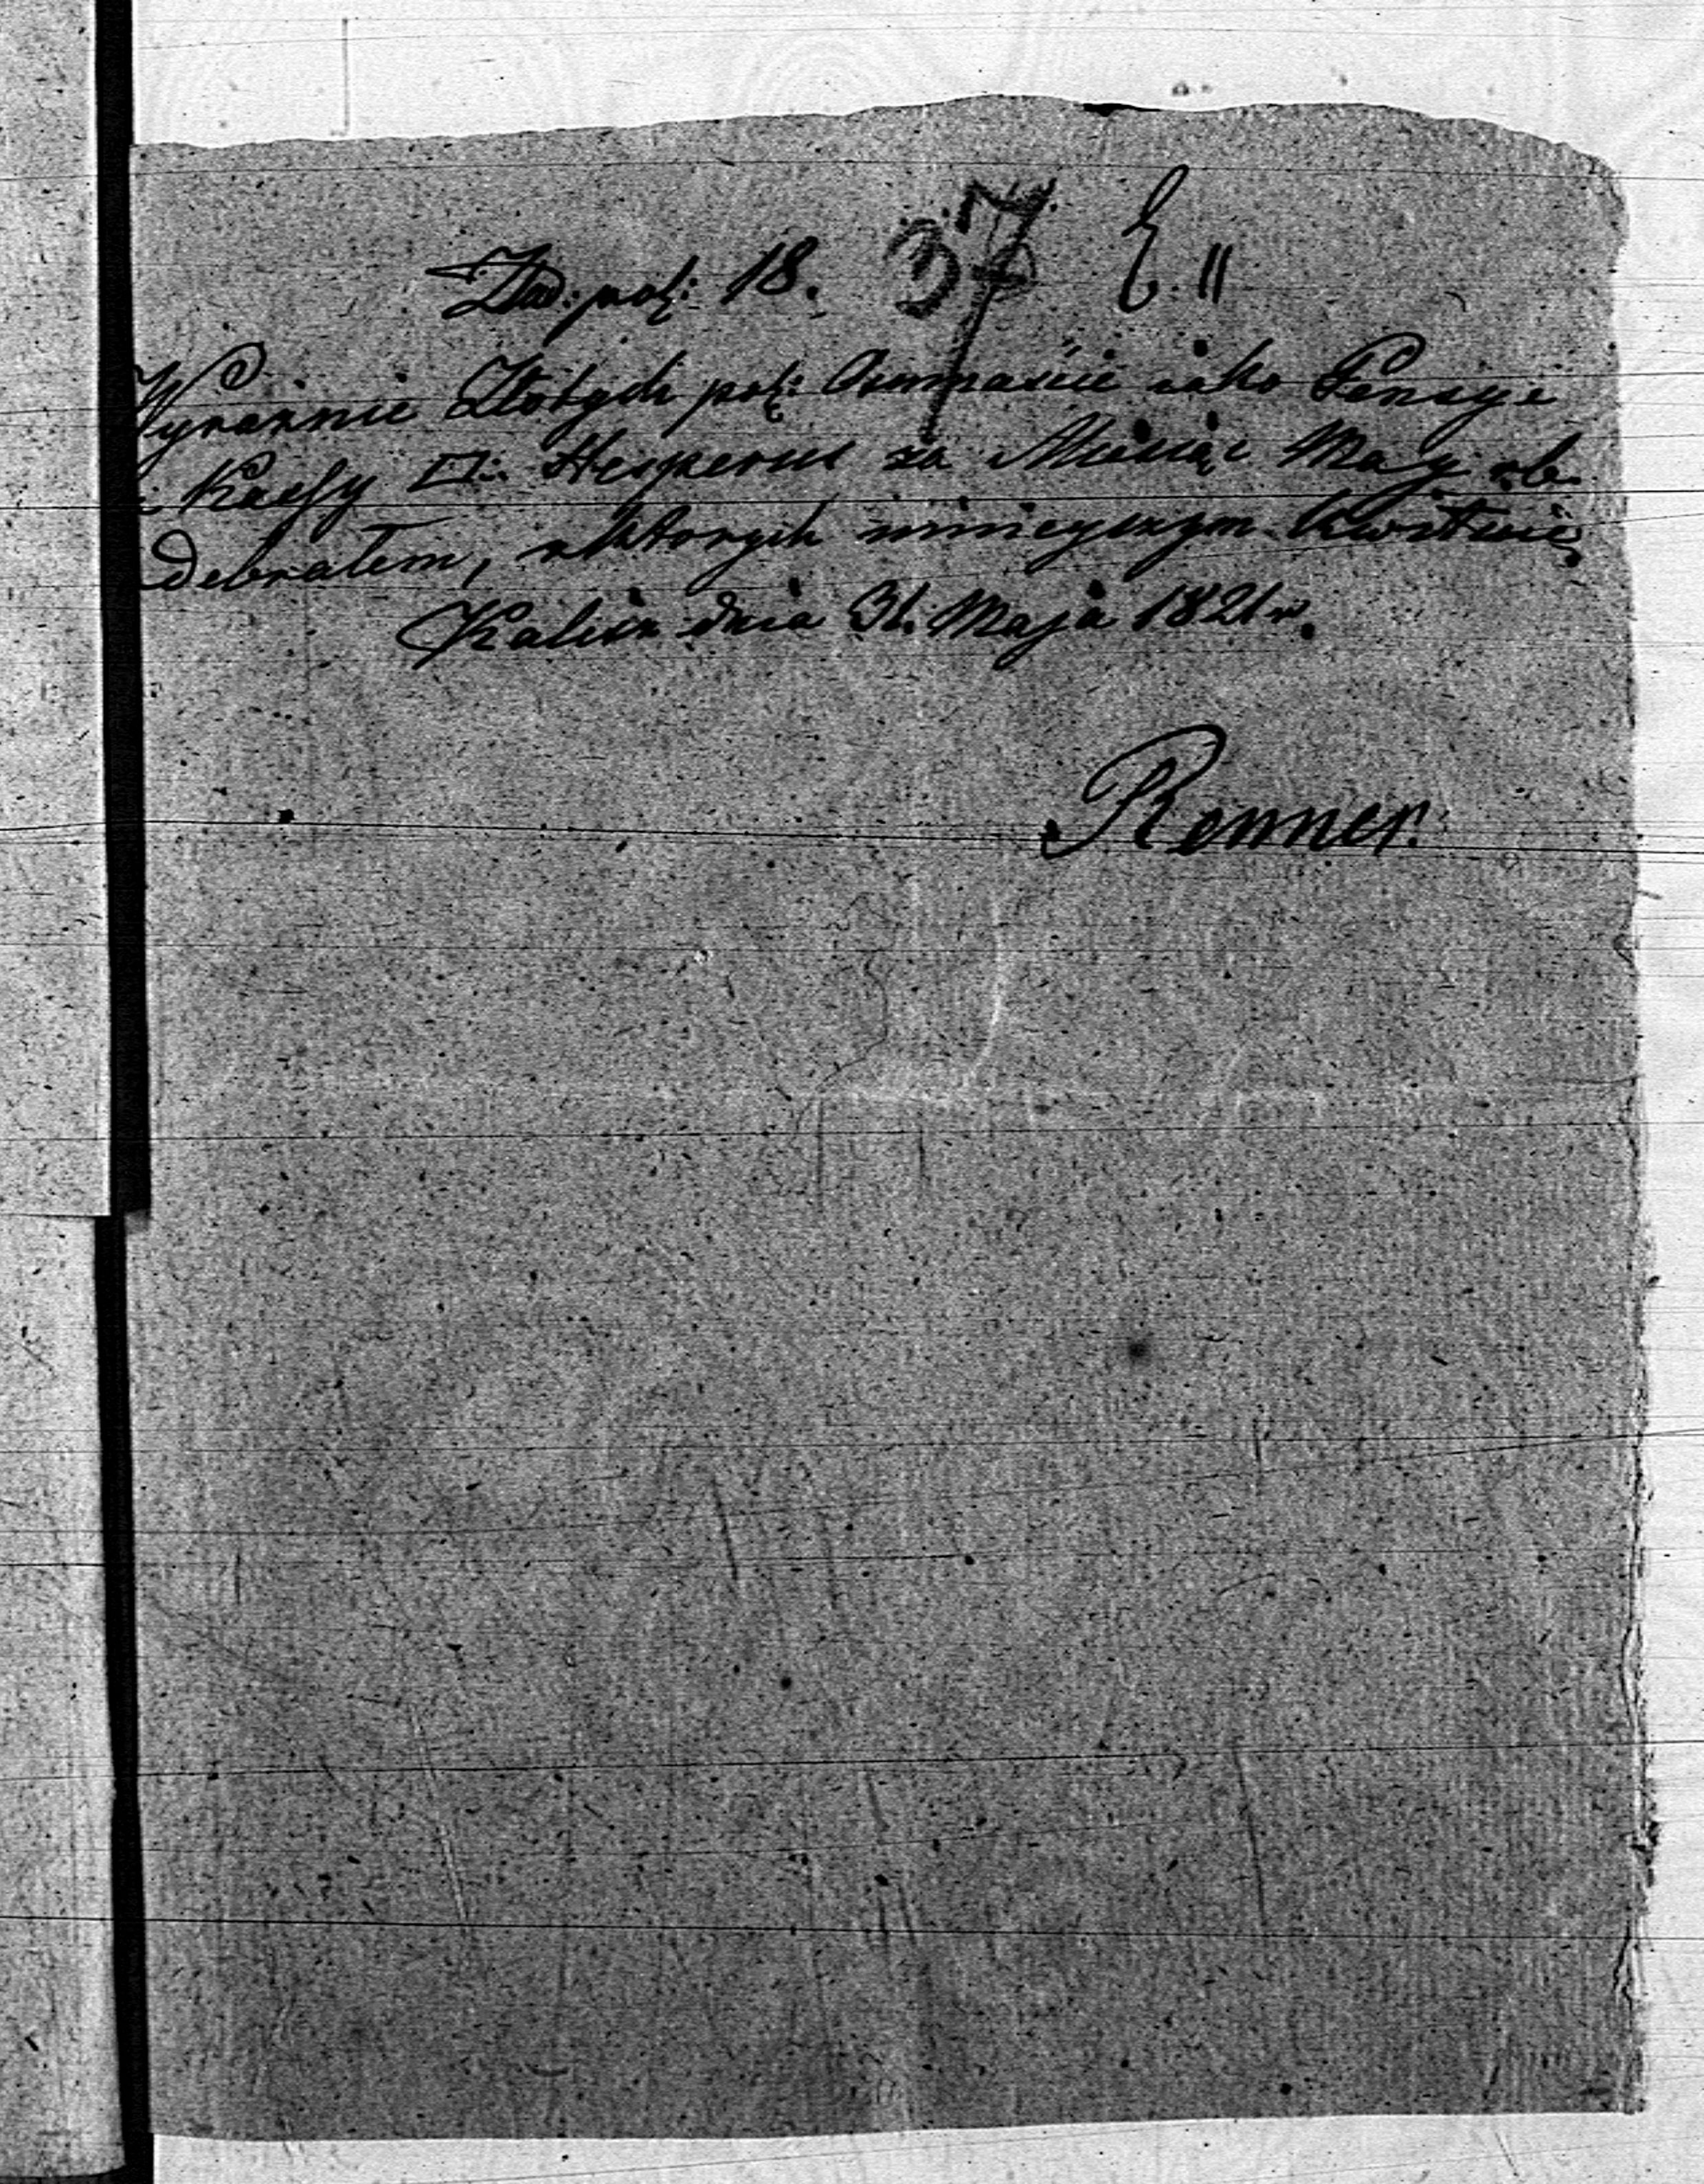 Zło: pol: 18. 37 E. 11
Wyraznie Złotych pol: Osmnaście iako Pensye
z Kassy □: Hesperus za Miesiąc May ode
debrałem, z ktorych ninieyszym kwituię
Kalisz dnia 31. Maja 1821 r.
Renner.